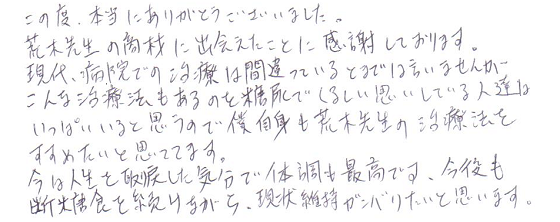 この度、本当にありがとうございました。
荒木先生の商材に出会えたことに感謝しております。
現代、病院での治療は間違っているとまでは言いませんが
こんな治療法もあるのを糖尿でくるしい思いしている人達は
いっぱいいると思うので僕自身も荒木先生の治療法を
すすめたいと思ってます。
今は人生を取戻した気分で体調も最高です、今後も
断糖食を続けながら、現状維持がンバリたいと思います。